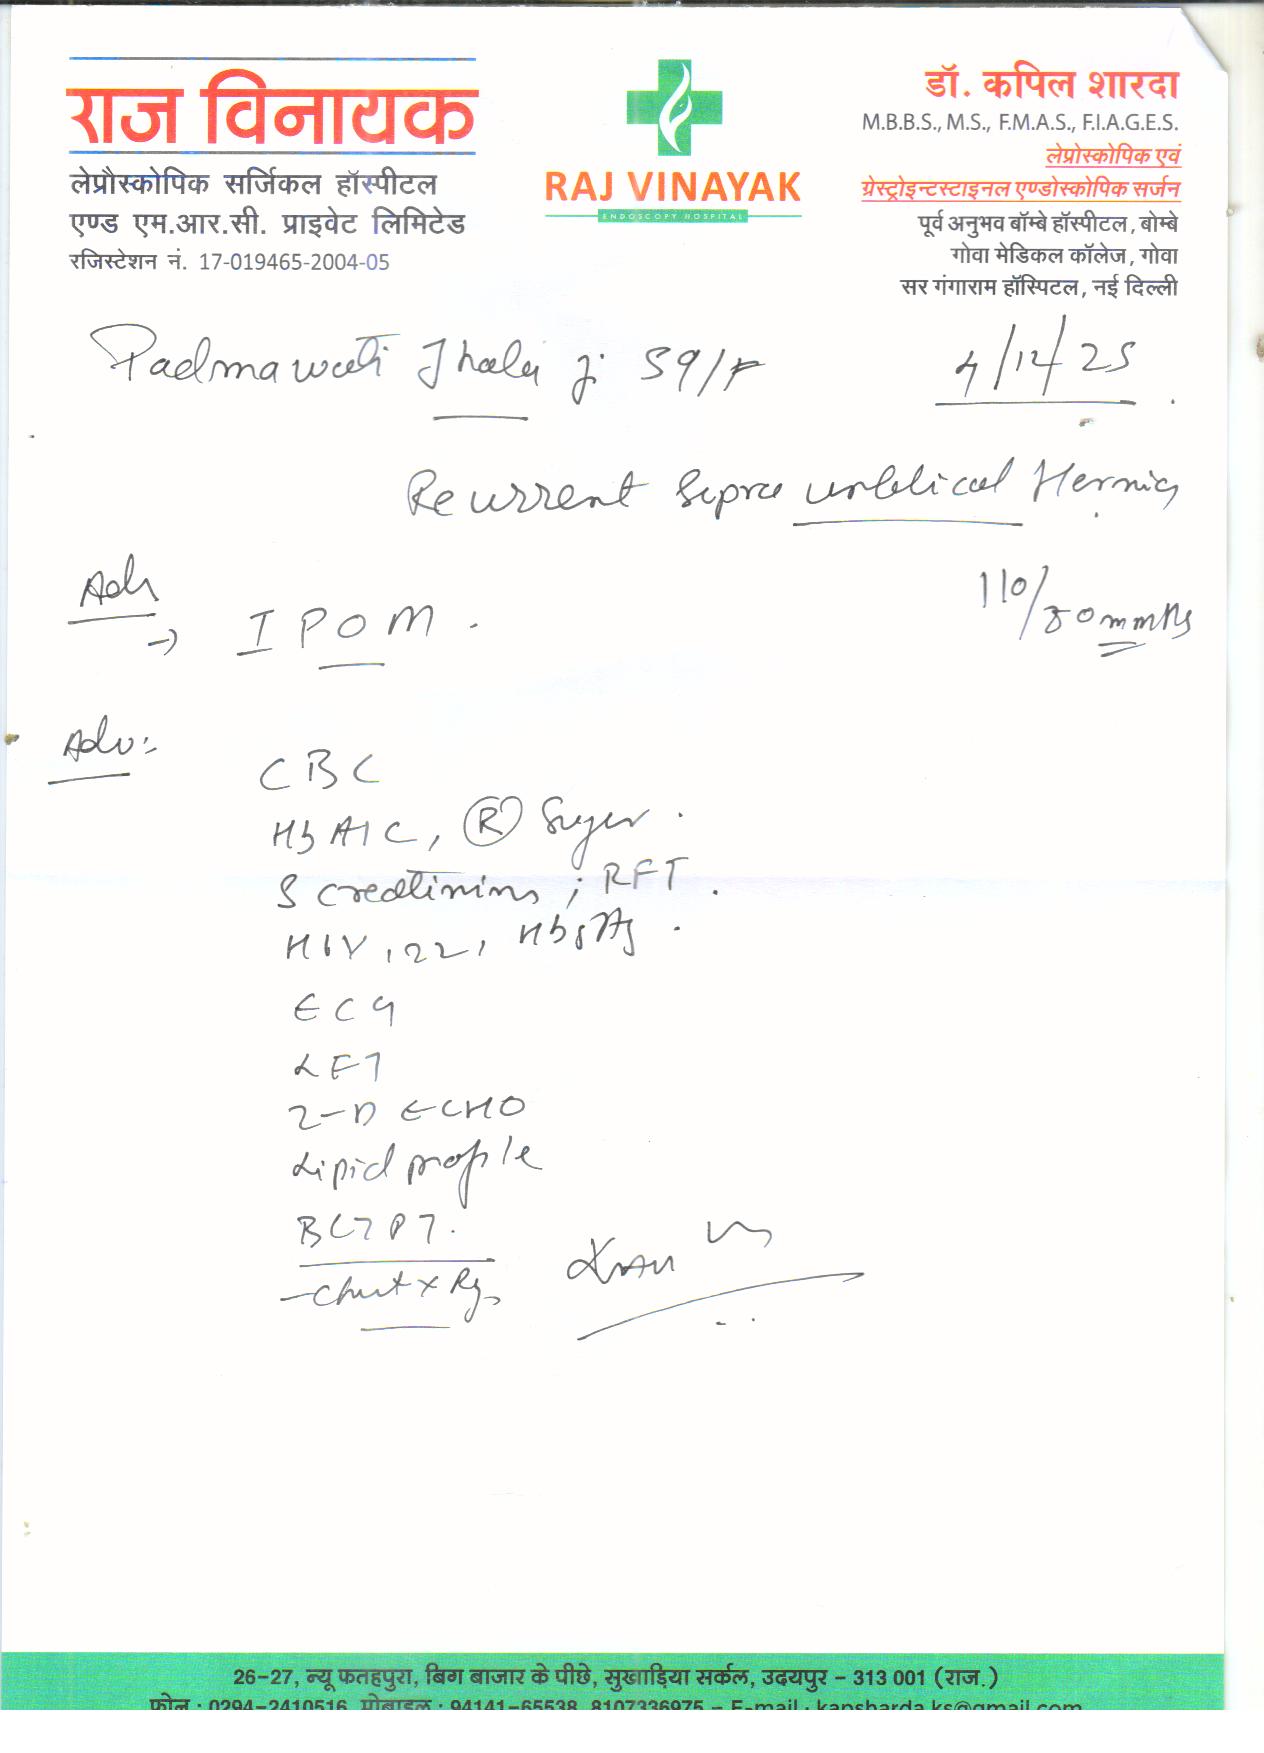 राज विनायक
लेप्रौस्कोपिक सर्जिकल हॉस्पीटल
एण्ड एम.आर.सी. प्राइवेट लिमिटेड
रजिस्टेशन नं. 17-019465-2004-05
RAJ VINAYAK
ENDOSCOPY HOSPITAL
डॉ. कपिल शारदा
M.B.B.S., M.S., F.M.A.S., F.I.A.G.E.S.
लेप्रोस्कोपिक एवं
ग्रेस्ट्रोइन्टस्टाइनल एण्डोस्कोपिक सर्जन
पूर्व अनुभव बॉम्बे हॉस्पीटल, बोम्बे
गोवा मेडिकल कॉलेज, गोवा
सर गंगाराम हॉस्पिटल, नई दिल्ली
Padmawati Jhala ji 59/F 4/12/25
Recurrent Supra umblical Hernia
Adv
→ IPOM.
110/80 mmHg
Adv:
CBC
HbA1C, (R) Suger.
S creatinine; RFT.
HIV, HbsAg.
ECG
LFT
2-D ECHO
Lipid profile
BT CT PT.
- Chest X Ray
26-27, न्यू फतहपुरा, बिग बाजार के पीछे, सुखाड़िया सर्कल, उदयपुर - 313 001 (राज.)
फोन : 0294-2410516, मोबाइल : 94141-65538, 8107336975 - E-mail : kapsharda.ks@gmail.com